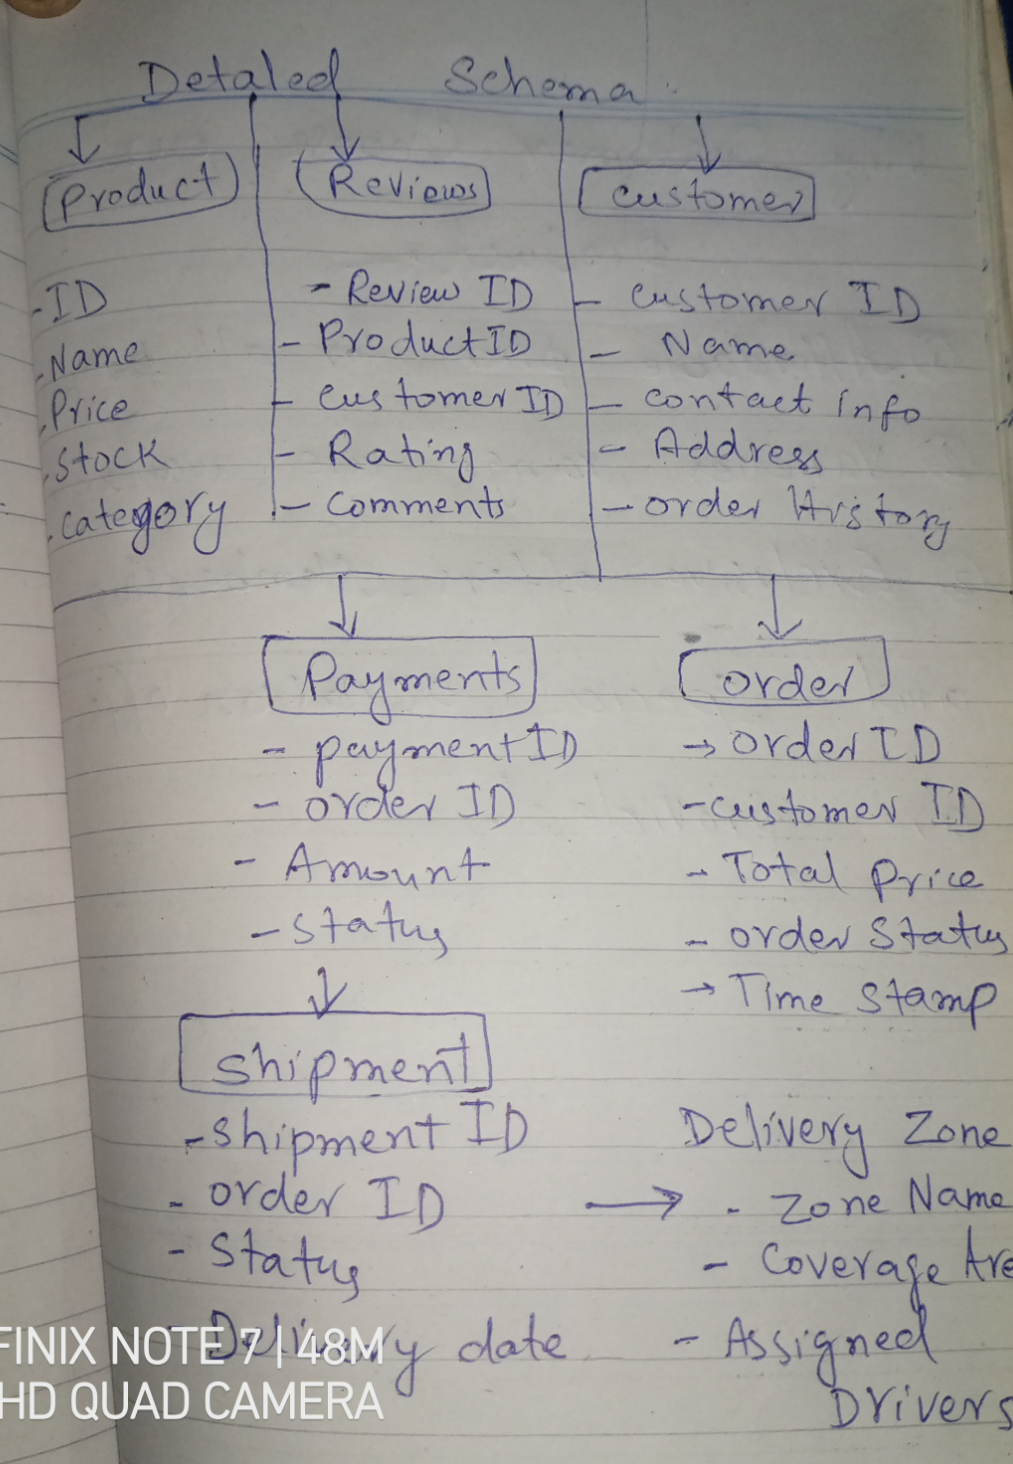 Detaled Schema
Product
- ID
. Name
. Price
. Stock
. Category
Reviews
- Review ID
- Product ID
- Customer ID
- Rating
- Comments
Customer
- Customer ID
- Name
- contact info
- Address
- order History
Payments
- payment ID
- order ID
- Amount
- Status
order
→ order ID
- customer ID
- Total price
- order Status
→ Time Stamp
Shipment
- Shipment ID
- order ID
- Status
- Delivery date
Delivery Zone
→ - Zone Name
- Coverage Are
- Assigned
Drivers
FINIX NOTE 7 | 48M
HD QUAD CAMERA